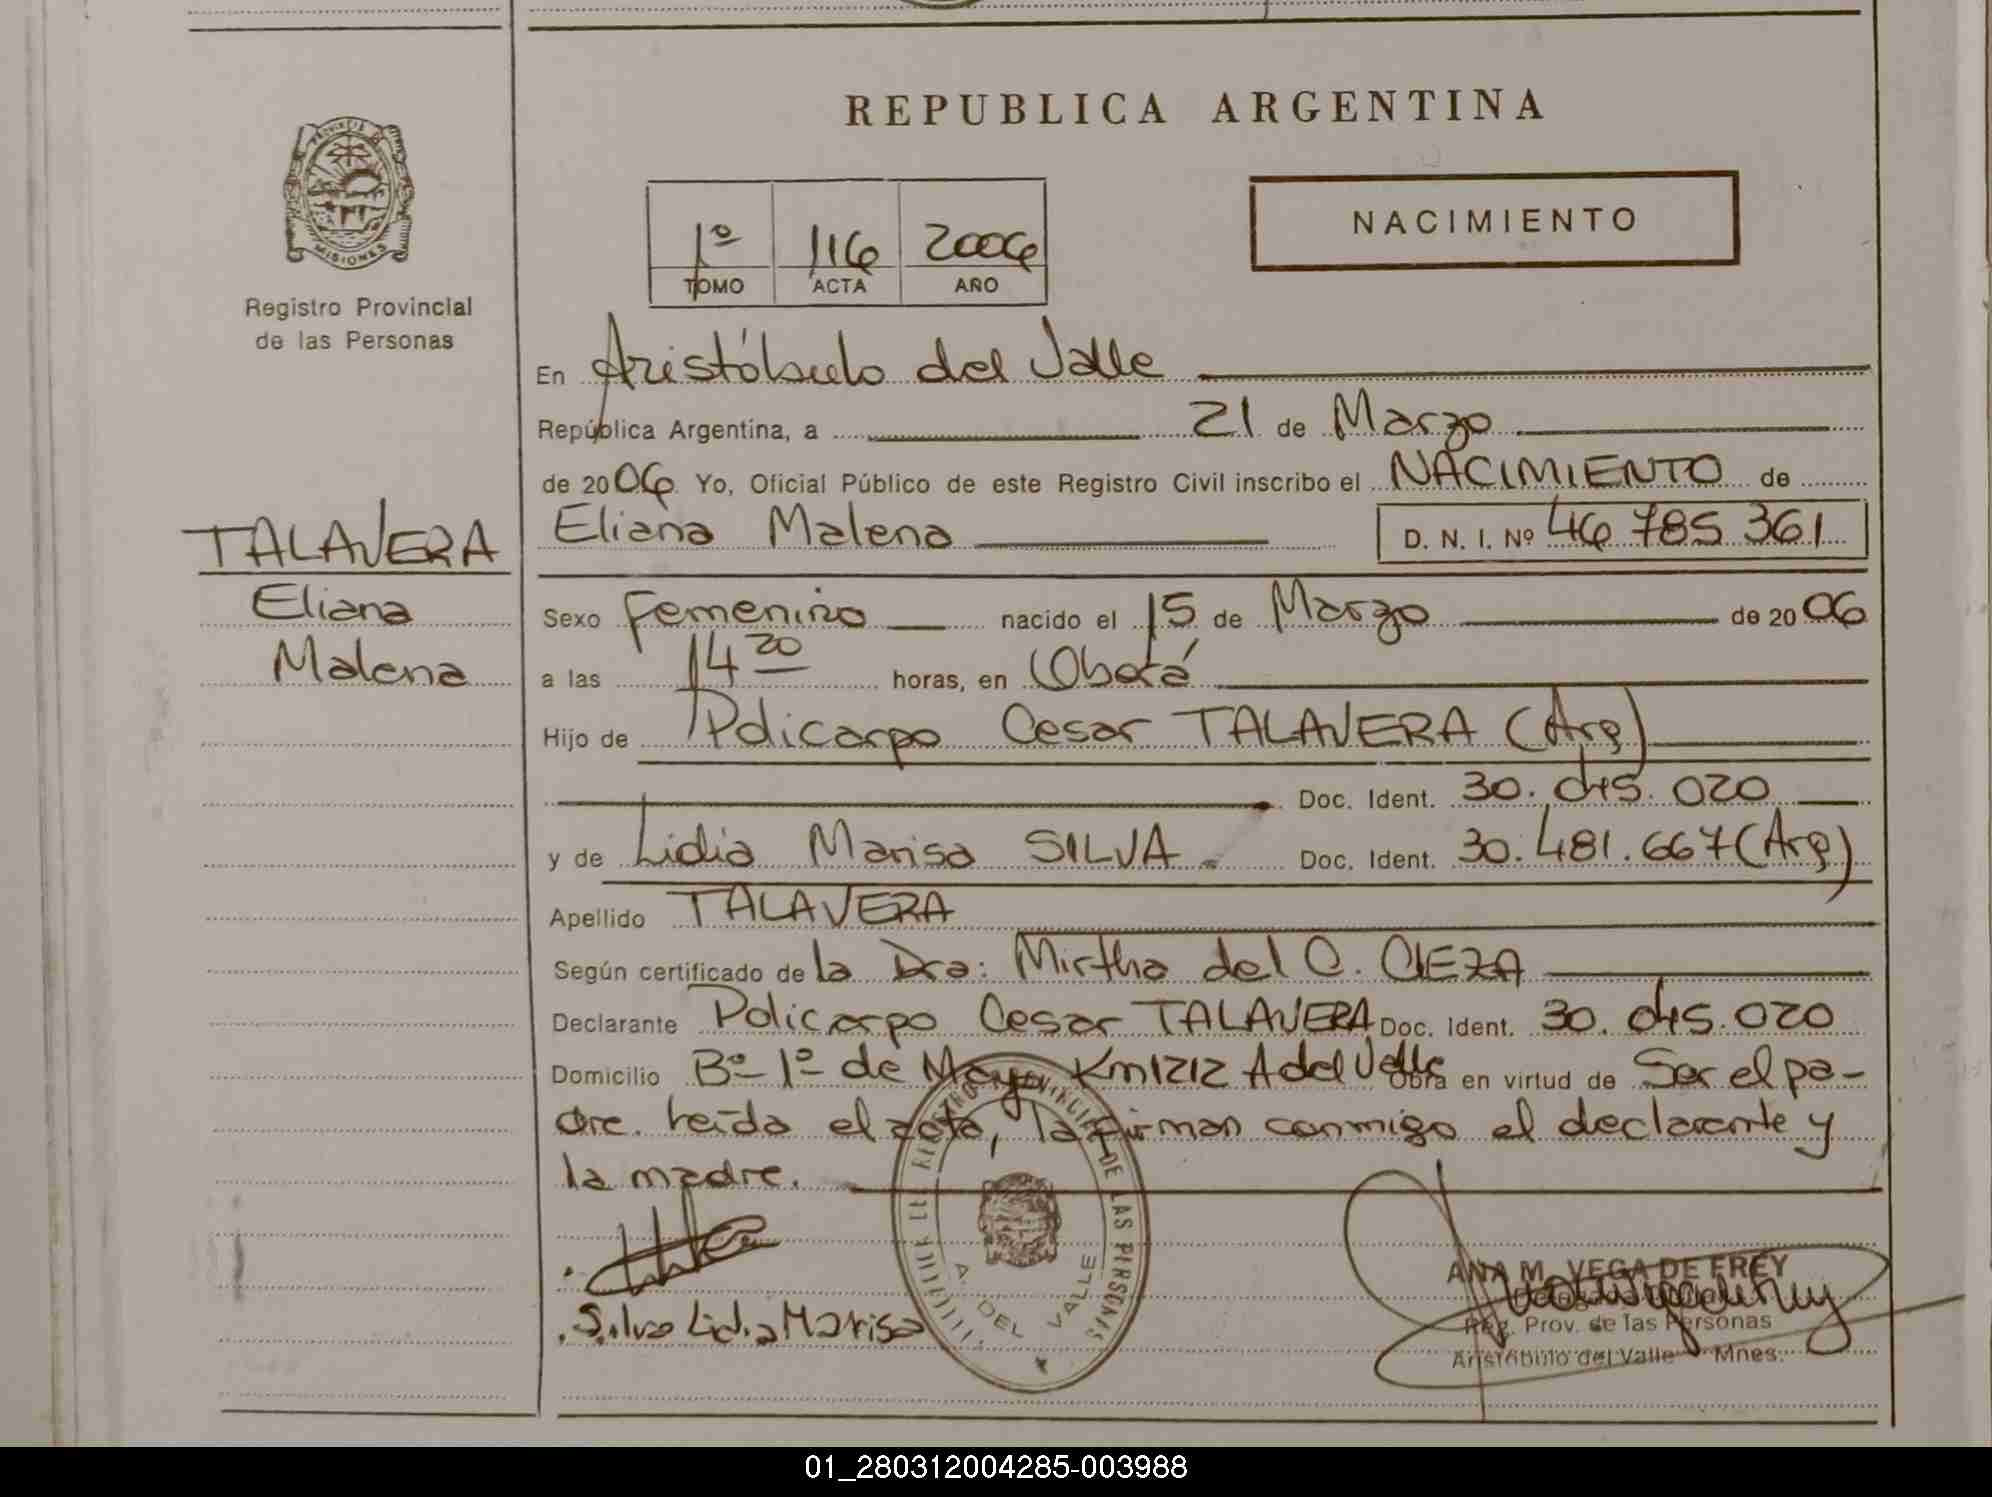 REPUBLICA ARGENTINA
PROVINCIA DE
MISIONES
Registro Provincial
de las Personas
NACIMIENTO
1º 116 2006
TOMO ACTA AÑO
En Aristóbulo del Valle
República Argentina, a 21 de Marzo
de 2006 Yo, Oficial Público de este Registro Civil inscribo el NACIMIENTO de
TALAVERA
Eliana
Malena
Eliana Malena D. N. I. Nº 46 785 361
Sexo Femenino nacido el 15 de Marzo de 2006
a las 14 20 horas, en Oberá
Hijo de Policarpo Cesar TALAVERA (Arg)
Doc. Ident. 30. 020
y de Lidia Marisa SILVA Doc. Ident. 30.481.667 (Arg)
Apellido TALAVERA
Según certificado de la Dra: Mirtha del C. CIEZA
Declarante Policarpo Cesar TALAVERA Doc. Ident. 30. 020
Domicilio Bº 1º de Mayo Km 1212 A del Valle Obra en virtud de Ser el pa-
dre. Leída el acta, la firman conmigo el declarante y
la madre.
Silva Lidia Marisa
REGISTRO PROVINCIAL DE LAS PERSONAS
A. DEL VALLE
ANA M. VEGA DE FREY
Reg. Prov. de las Personas
Aristóbulo del Valle - Mnes.
01_280312004285-003988